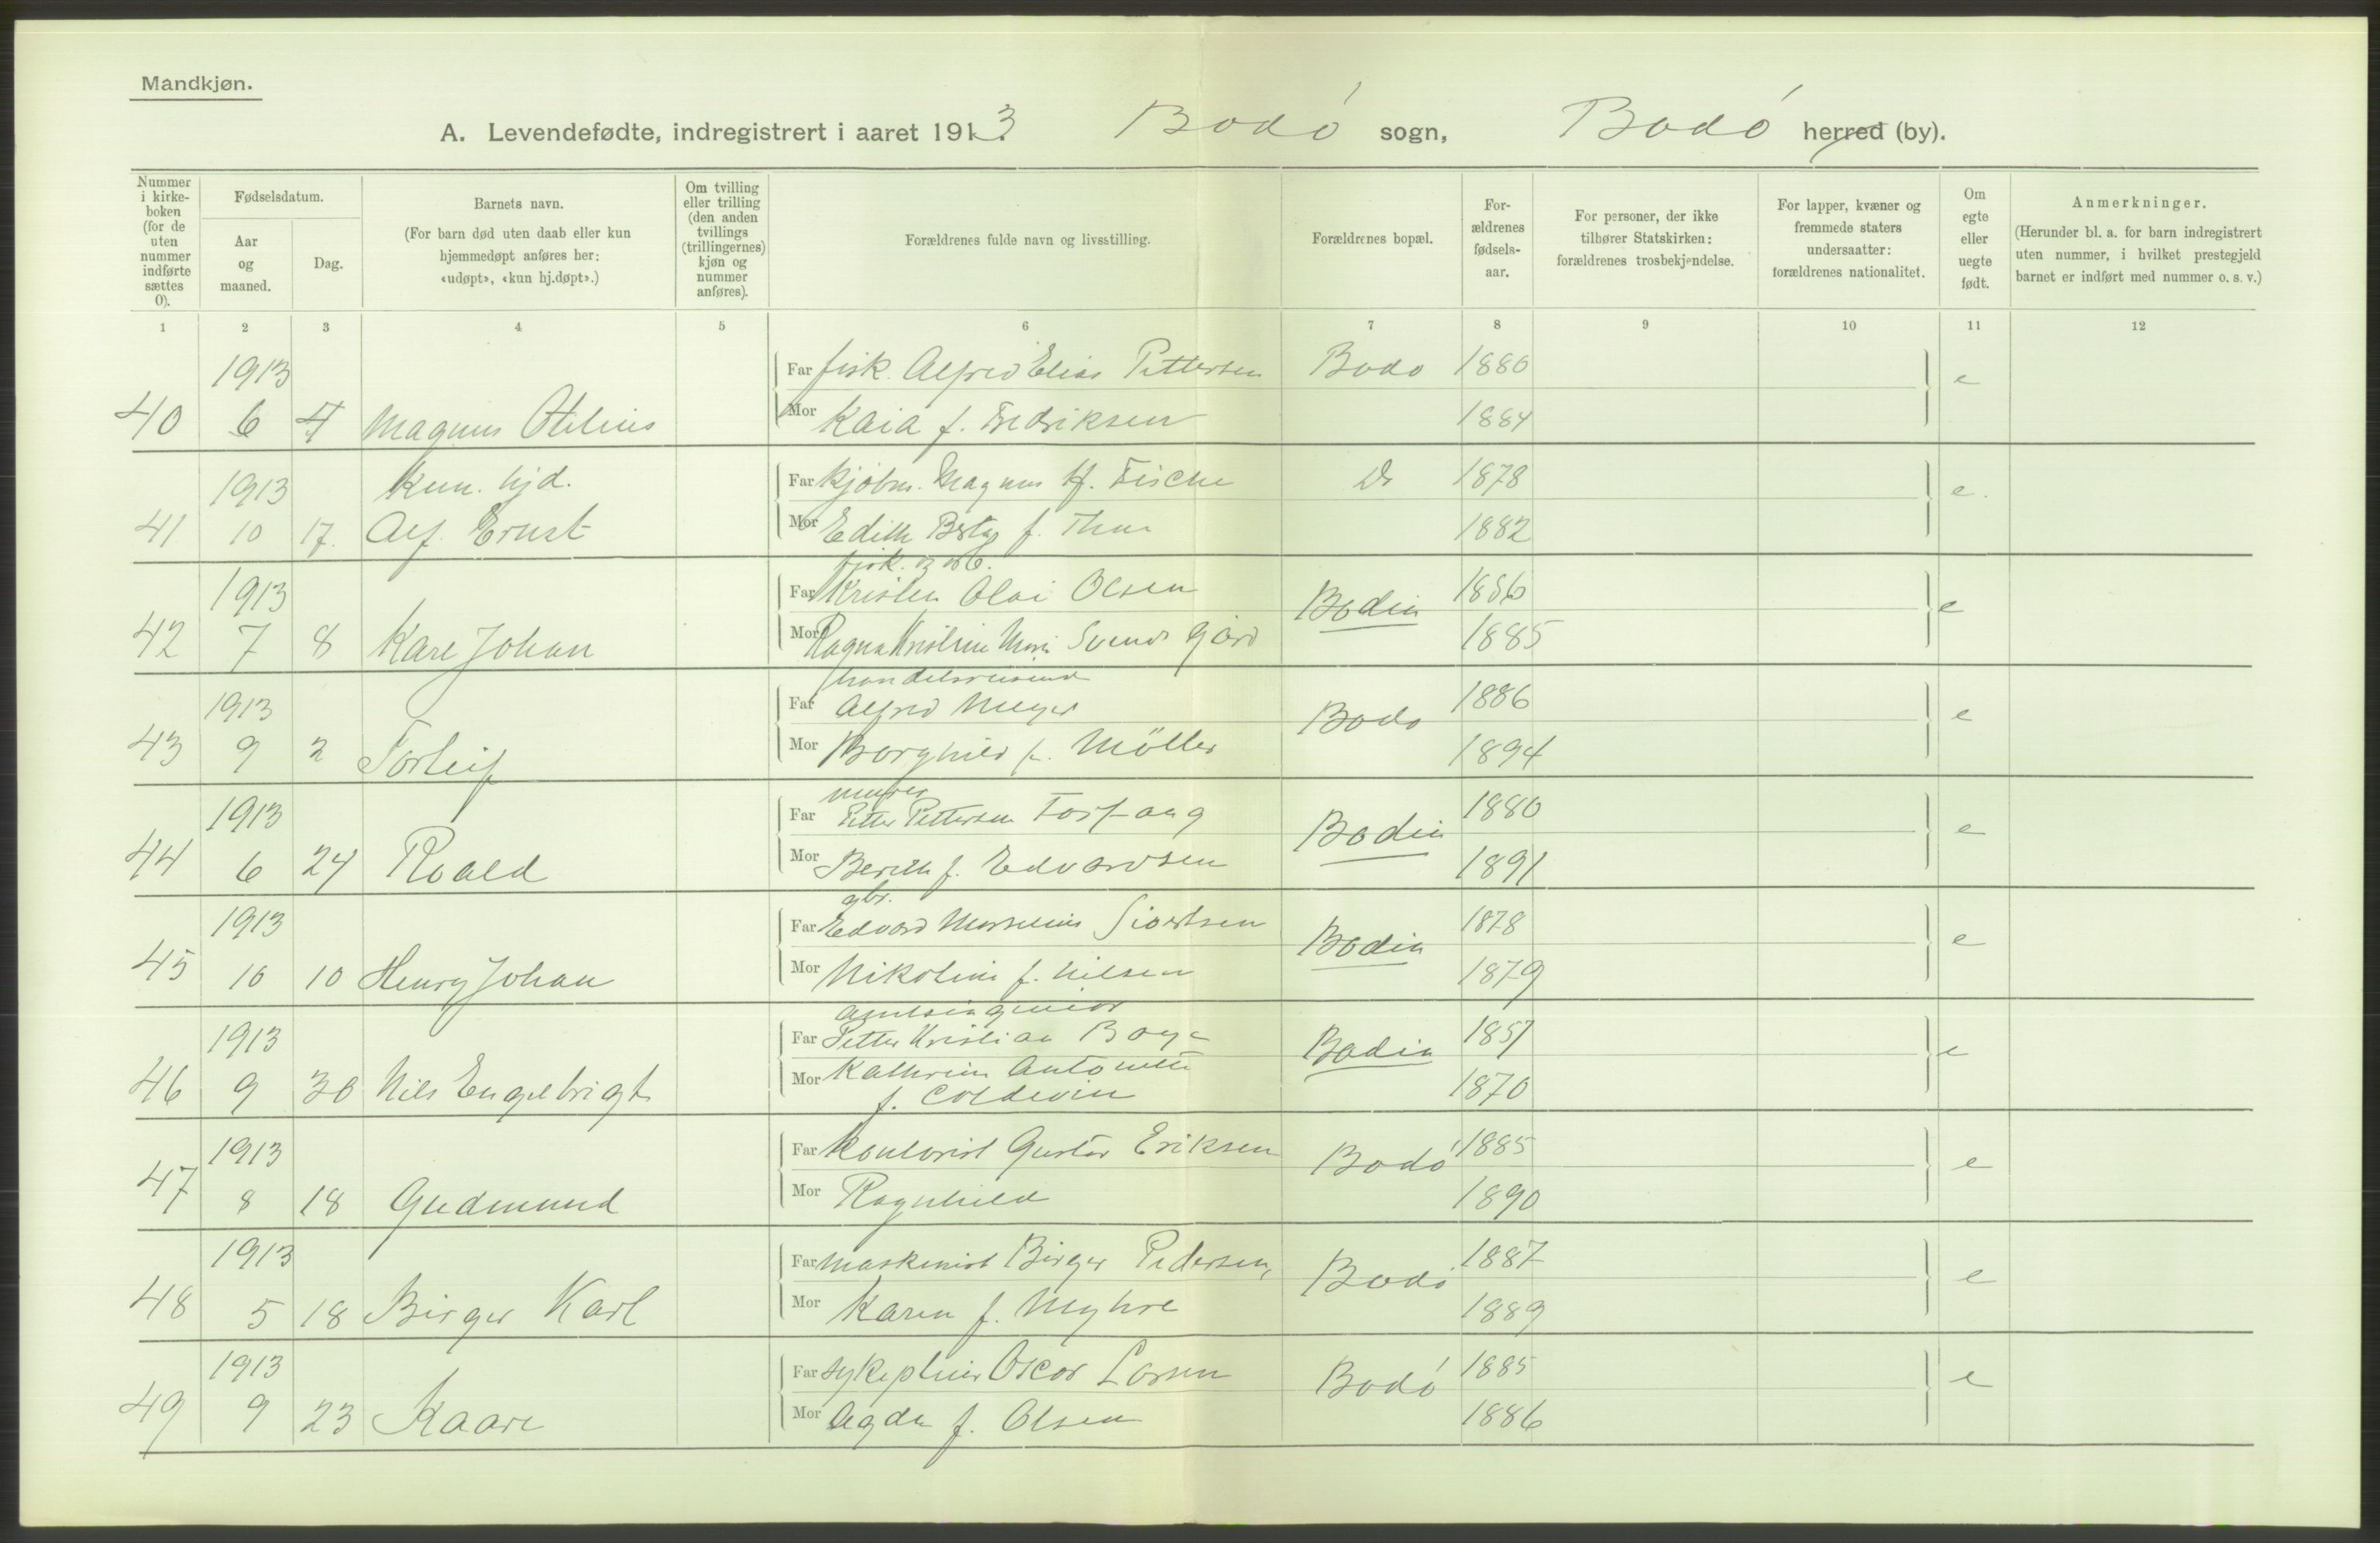 Mandkjøn.
A. Levendefødte, indregistrert i aaret 1913. Bodó sogn, Bodó herred (by).
Nummer i kirkeboken (for de uten nummer indførte sættes 0).
Fødselsdatum.
Aar og maaned.
Dag.
Barnets navn.
(For barn død uten daab eller kun hjemmedøpt anføres her: «udøpt», «kun hj.døpt».)
Om tvilling eller trilling (den anden tvillings (trillingernes) kjøn og nummer anføres).
Forældrenes fulde navn og livsstilling.
Forældrenes bopæl.
Forældrenes fødselsaar.
For personer, der ikke tilhører Statskirken: forældrenes trosbekjendelse.
For lapper, kvæner og fremmede staters undersaatter: forældrenes nationalitet.
Om egte eller uegte født.
Anmerkninger.
(Herunder bl. a. for barn indregistrert uten nummer, i hvilket prestegjeld barnet er indført med nummer o. s. v.)
1 2 3 4 5 6 7 8 9 10 11 12
1913 Far fisk. Alfred Elias Pettersen Bodo 1880 e
40 6 4 Magnus Otelius Mor Kaia f. Fredriksen 1884
1913 Kun. hjd. Far Kjøbm. Magnus H. Do 1878 e.
41 10 17. Alf. Ernst Mor Edith f. 1882
fisk. og
1913 Far Kristen Olai Olsen Bodin 1886 e
42 7 8 Karl Johan Mor Ragna Kristine Marie Svendsgård 1885
handelsreisend
1913 Far Alfred Meyer Bodo 1886 e
43 9 2 Torleif Mor Borghild f. Möller 1894
murer
1913 Far Petter Pettersen Torfang Bodin 1880 e
44 6 24 Roald Mor Berith f. Edvardsen 1891
gbr.
1913 Far Edvard Marselius Sivertsen Bodin 1878 e
45 10 10 Henry Johan Mor Nikoline f. Nilsen 1879
amtsingeniør
1913 Far Petter Kristian Boye Bodin 1857 e
46 9 30 Nils Engelbrigt Mor Kathrine Antonette 1870
f. Coldevin
1913 Far Kontorist Gustav Eriksen Bodó 1885 e
47 8 18 Gudmund Mor Ragnhild 1890
1913 Far Maskinist Birger Pedersen, Bodó 1887 e
48 5 18 Birger Karl Mor Karen f. Myhre 1889
1913 Far sykepleier Oscar Larsen Bodó 1885 e
49 9 23 Kaare Mor Agda f. Olsen 1886